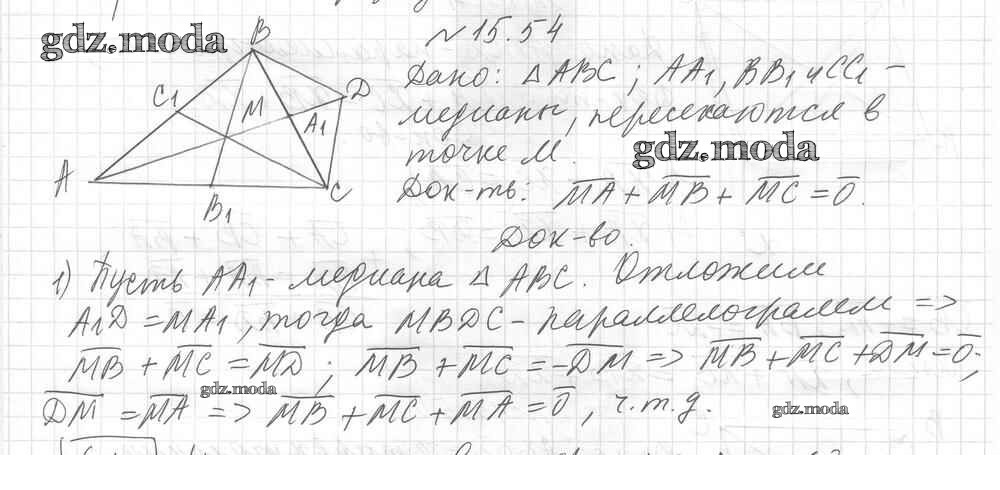 gdz.moda
№ 15.54
B
C₁
D
M
A₁
A
B₁
C
Дано: △ABC; AA₁, BB₁ и CC₁ –
медианы, пересекаются в
точке M.
gdz.moda
Док-ть: M̅A̅ + M̅B̅ + M̅C̅ = 0̅.
Док-во.
1) Пусть AA₁ - медиана △ ABC. Отложим
A₁D = MA₁, тогда MBDC - параллелограмм =>
M̅B̅ + M̅C̅ = M̅D̅; M̅B̅ + M̅C̅ = -D̅M̅ => M̅B̅ + M̅C̅ + D̅M̅ = 0̅;
gdz.moda
D̅M̅ = M̅A̅ => M̅B̅ + M̅C̅ + M̅A̅ = 0̅, ч.т.д.
gdz.moda